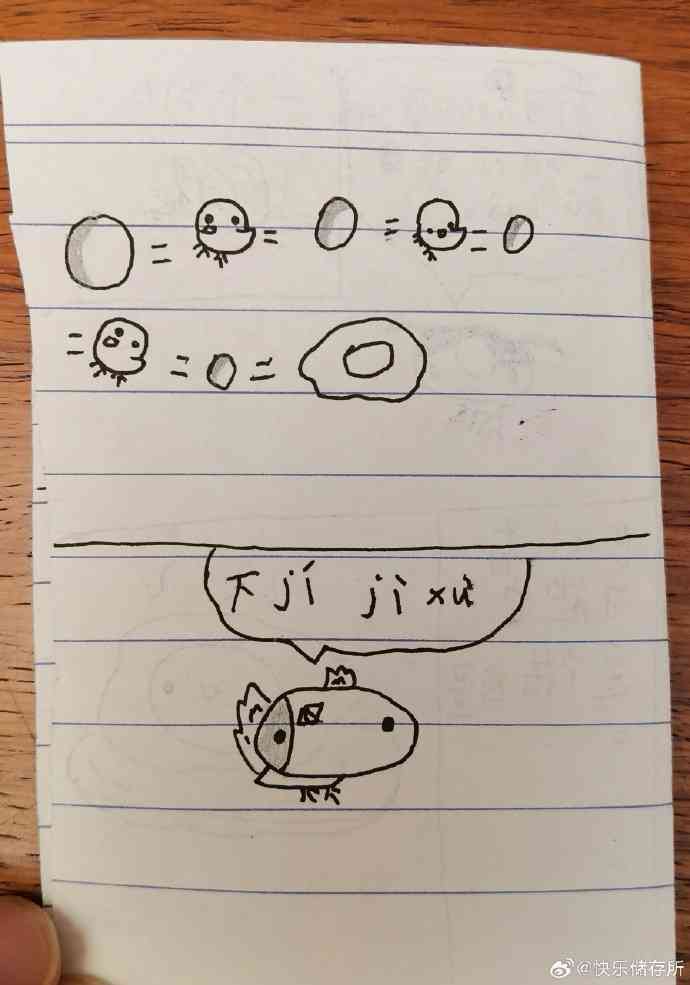 = = = =
= = =
下 jí jì xù
@快乐储存所